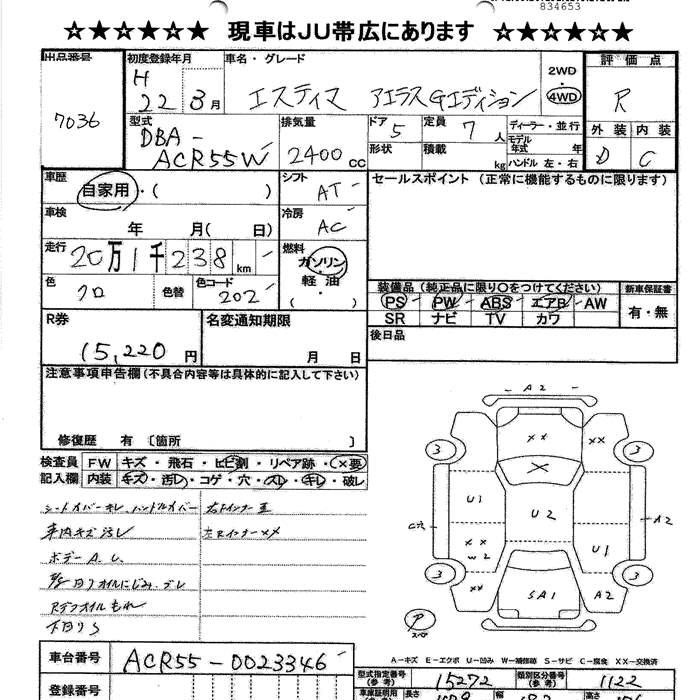 834653
☆★☆★☆★ 現車はJU帯広にあります ☆★☆★☆★
出品番号
7036
初度登録年月
H 22 3月
車名・グレード
エスティマ アエラスGエディション
2WD
・
4WD
評価点
R
外装 内装
D C
型式
DBA-
ACR55W
排気量
2400 CC
ドア 5
定員 7 人
形状
積載 kg
ディーラー・並行
モデル年式 年
ハンドル 左・右
車歴
自家用・( )
シフト
AT
セールスポイント (正常に機能するものに限ります)
車検
年 月( 日)
冷房
AC
走行
20万1千238km
燃料
ガソリン
軽油
・
( )
色
クロ
色替
色コード
202
装備品 (純正品に限り○をつけてください)
新車保証書
PS PW ABS エアB AW
SR ナビ TV カワ
有・無
R券
15,220円
名変通知期限
月 日
後日品
注意事項申告欄(不具合内容等は具体的に記入して下さい)
修復歴 有 〔箇所 〕
検査員 FW キズ・飛石・ヒビ割・リペア跡・(×要)
記入欄 内装 キズ・汚レ・コゲ・穴・スレ・キレ・破レ
シートカバーキレ、ハンドルカバー
車内キズ汚レ
ボデーA、U
Rデフオイルもれ
下回りS
A2
XX XX
3 3
X
U1 U2
C穴 A2
XX
W2
U1
3 3
XX SA1 A2
P
スペア
A-キズ E-エクボ U-凹み W-補修跡 S-サビ C-腐食 XX-交換済
車台番号
ACR55-0023346
型式指定番号
(参考)
15272
類別区分番号
(参考)
1122
登録番号
車庫証明用
長さ
幅
高さ